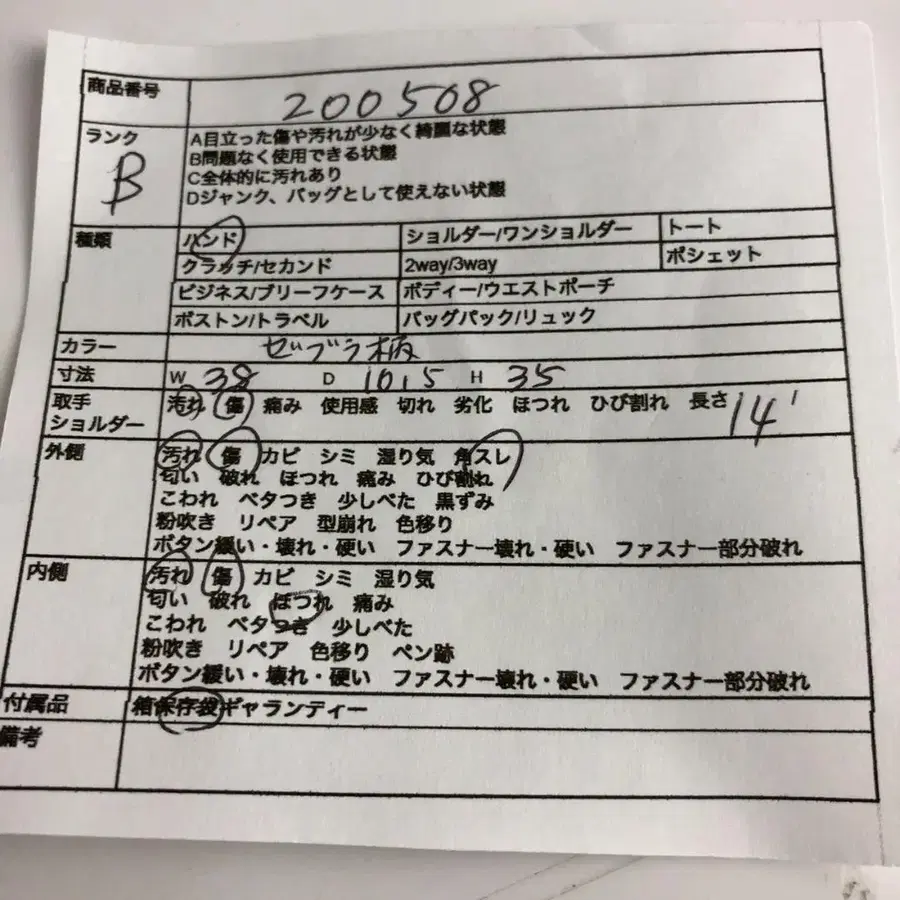 商品番号 200508
ランク B
A目立った傷や汚れが少なく綺麗な状態
B問題なく使用できる状態
C全体的に汚れあり
Dジャンク、バッグとして使えない状態
種類 ハンド ショルダー/ワンショルダー トート
クラッチ/セカンド 2way/3way ポシェット
ビジネス/ブリーフケース ボディー/ウエストポーチ
ボストン/トラベル バッグパック/リュック
カラー ゼブラ柄
寸法 W 38 D 10.5 H 35
取手 汚れ 傷 痛み 使用感 切れ 劣化 ほつれ ひび割れ 長さ 14
ショルダー
外側 汚れ 傷 カビ シミ 湿り気 角スレ
匂い 破れ ほつれ 痛み ひび割れ
こわれ ベタつき 少しべた 黒ずみ
粉吹き リペア 型崩れ 色移り
ボタン緩い・壊れ・硬い ファスナー壊れ・硬い ファスナー部分破れ
内側 汚れ 傷 カビ シミ 湿り気
匂い 破れ ほつれ 痛み
こわれ ベタつき 少しべた
粉吹き リペア 色移り ペン跡
ボタン緩い・壊れ・硬い ファスナー壊れ・硬い ファスナー部分破れ
付属品 箱保存袋ギャランティー
備考